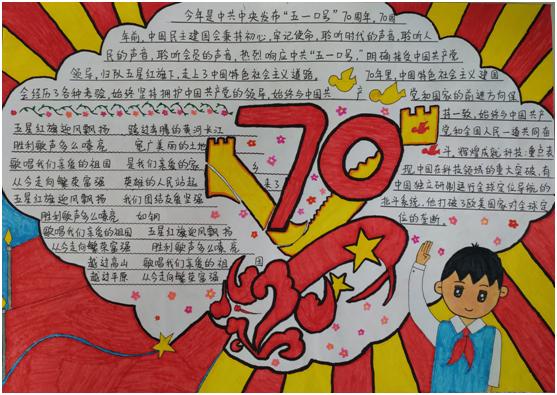 今年是中共中央发布“五一口号”70周年,70周
年前,中国民主建国会秉持初心,牢记使命,聆听时代的声音,聆听人
民的声音,聆听会员的声音,热烈响应中共“五一口号”,明确接受中国共产党
领导,归队五星红旗下,走上了中国特色社会主义道路。
70年里,中国特色社会主义建国
会经历了各种考验,始终坚持拥护中国共产党的领导,始终与中国共产
党和国家的前进方向保
持一致,始终与中国共产
党和全国人民一道共同奋
斗,辉煌成就 科技:重点表
现,中国在科技领域的重大突破,有
中国独立研制运行全球定位导航的
北斗系统,他打破了欧美国家对全球定
位的垄断。
五星红旗迎风飘扬 跨过奔腾的黄河长江
胜利歌声多么嘹亮 宽广美丽的土地
歌唱我们亲爱的祖国 是我们亲爱的家乡
从今走向繁荣富强 英雄的人民站起来了
五星红旗迎风飘扬 我们团结友爱坚强
胜利歌声多么嘹亮 如钢
歌唱我们亲爱的祖国 五星红旗迎风飘扬
从今走向繁荣富强 胜利歌声多么嘹亮
越过高山 歌唱我们亲爱的祖国
越过平原 从今走向繁荣富强
70